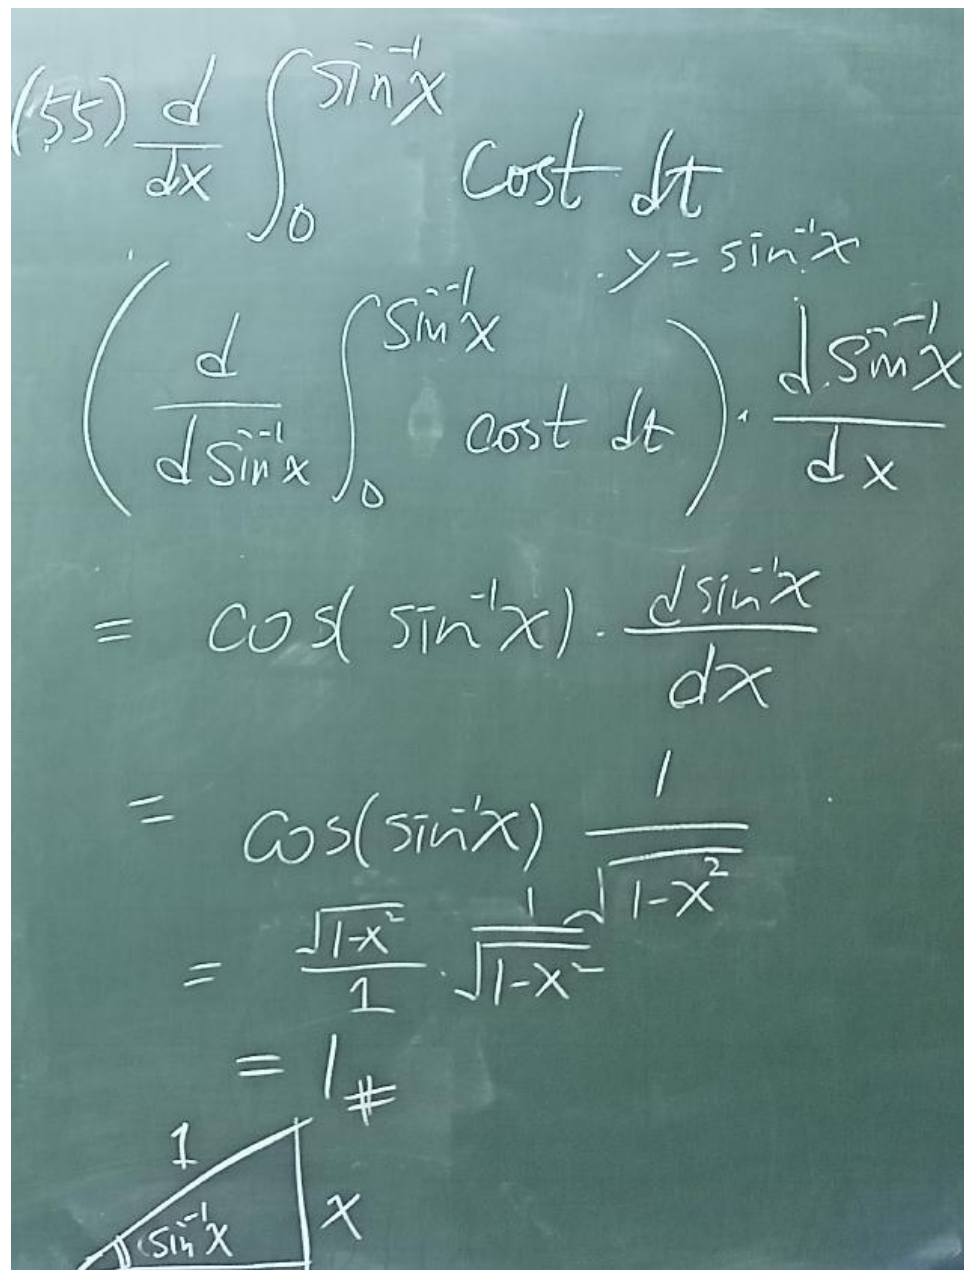 (55) d/dx ∫₀^(sin⁻¹x) cost dt
y = sin⁻¹x
( d/(d sin⁻¹x) ∫₀^(sin⁻¹x) cost dt ) · (d sin⁻¹x)/(dx)
= cos( sin⁻¹x) · (d sin⁻¹x)/(dx)
= cos(sin⁻¹x) 1/√(1-x²)
= √(1-x²)/1 · 1/√(1-x²)
= 1 #
1
sin⁻¹x
x